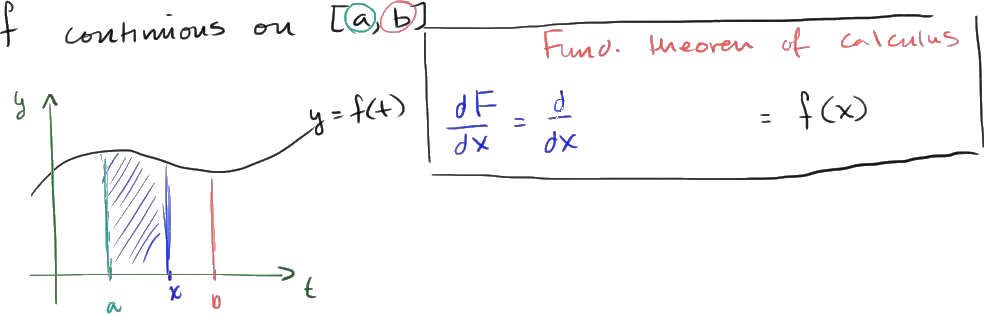 f continuous on [a,b]
Fund. theorem of calculus
dF/dx = d/dx = f(x)
y
y = f(t)
a x b t